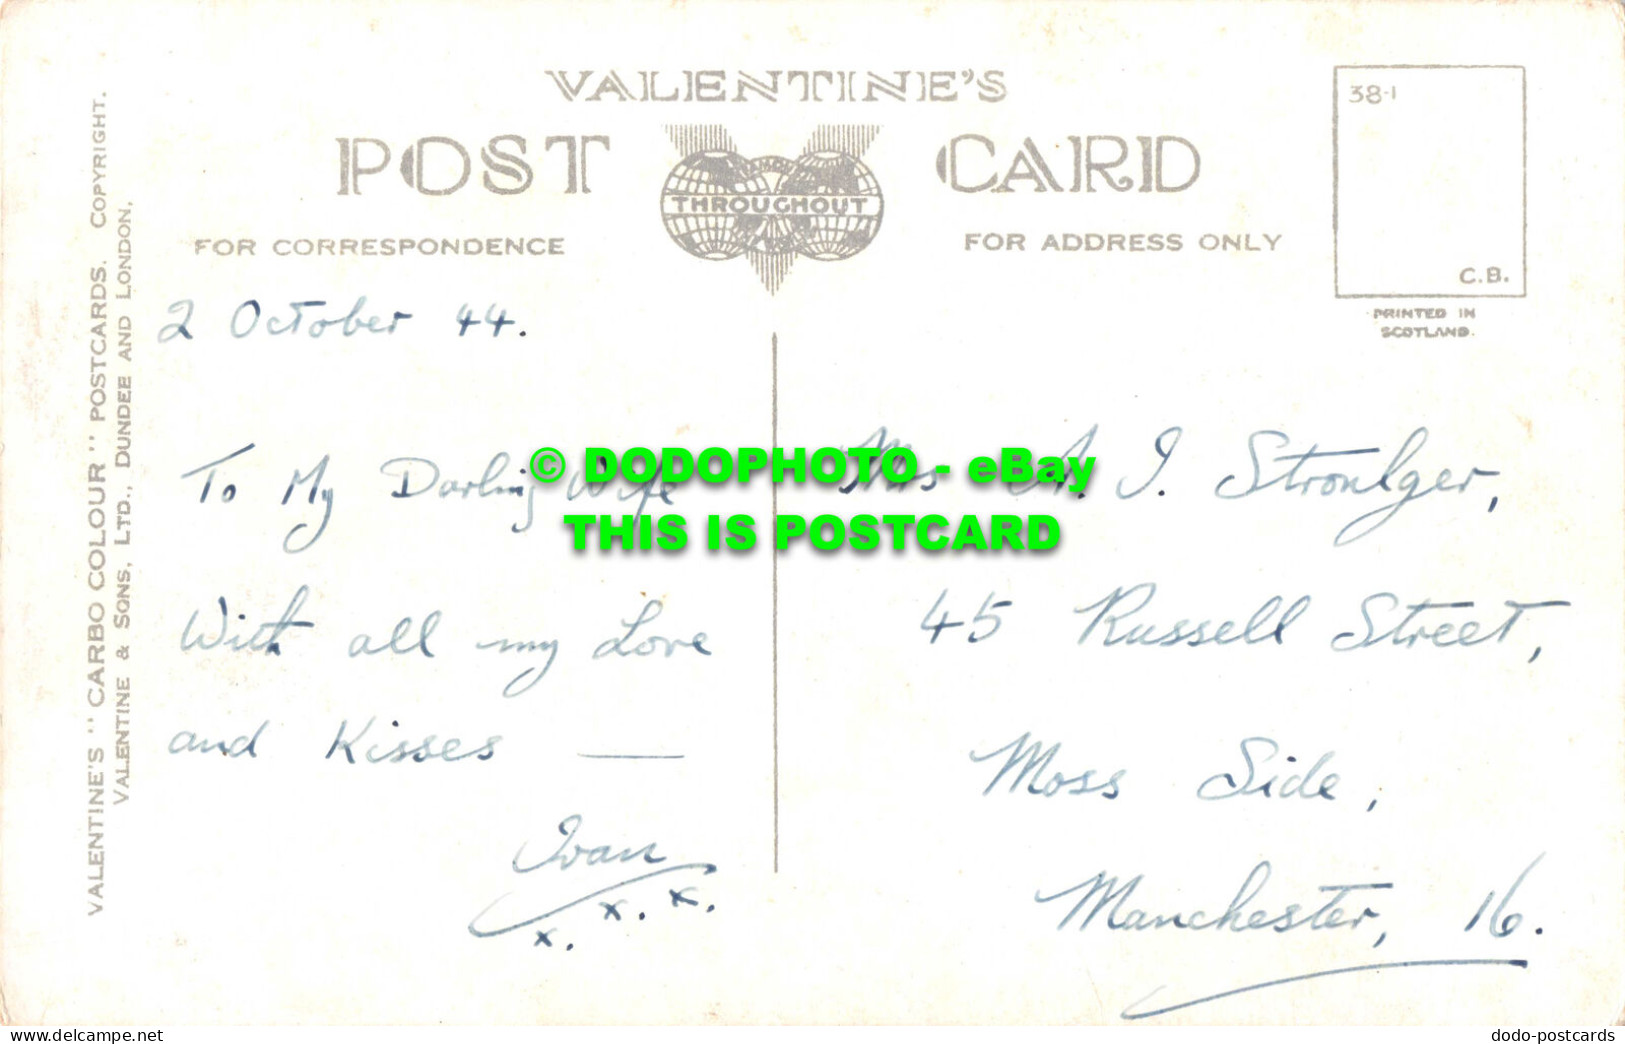 VALENTINE'S
POST CARD
THROUGHOUT
FOR CORRESPONDENCE
FOR ADDRESS ONLY
38-1
C.B.
PRINTED IN
SCOTLAND.
VALENTINE'S "CARBO COLOUR" POSTCARDS. COPYRIGHT.
VALENTINE & SONS, LTD., DUNDEE AND LONDON.
2 October 44.
To My Darling Wife
With all my Love
and Kisses —
Ivan
x. x. x.
Mrs A. I. Stroulger,
45 Russell Street,
Moss Side,
Manchester, 16.
© DODOPHOTO - eBay
THIS IS POSTCARD
https://www.ebay.com/str/dodophoto.net
dodo-postcards